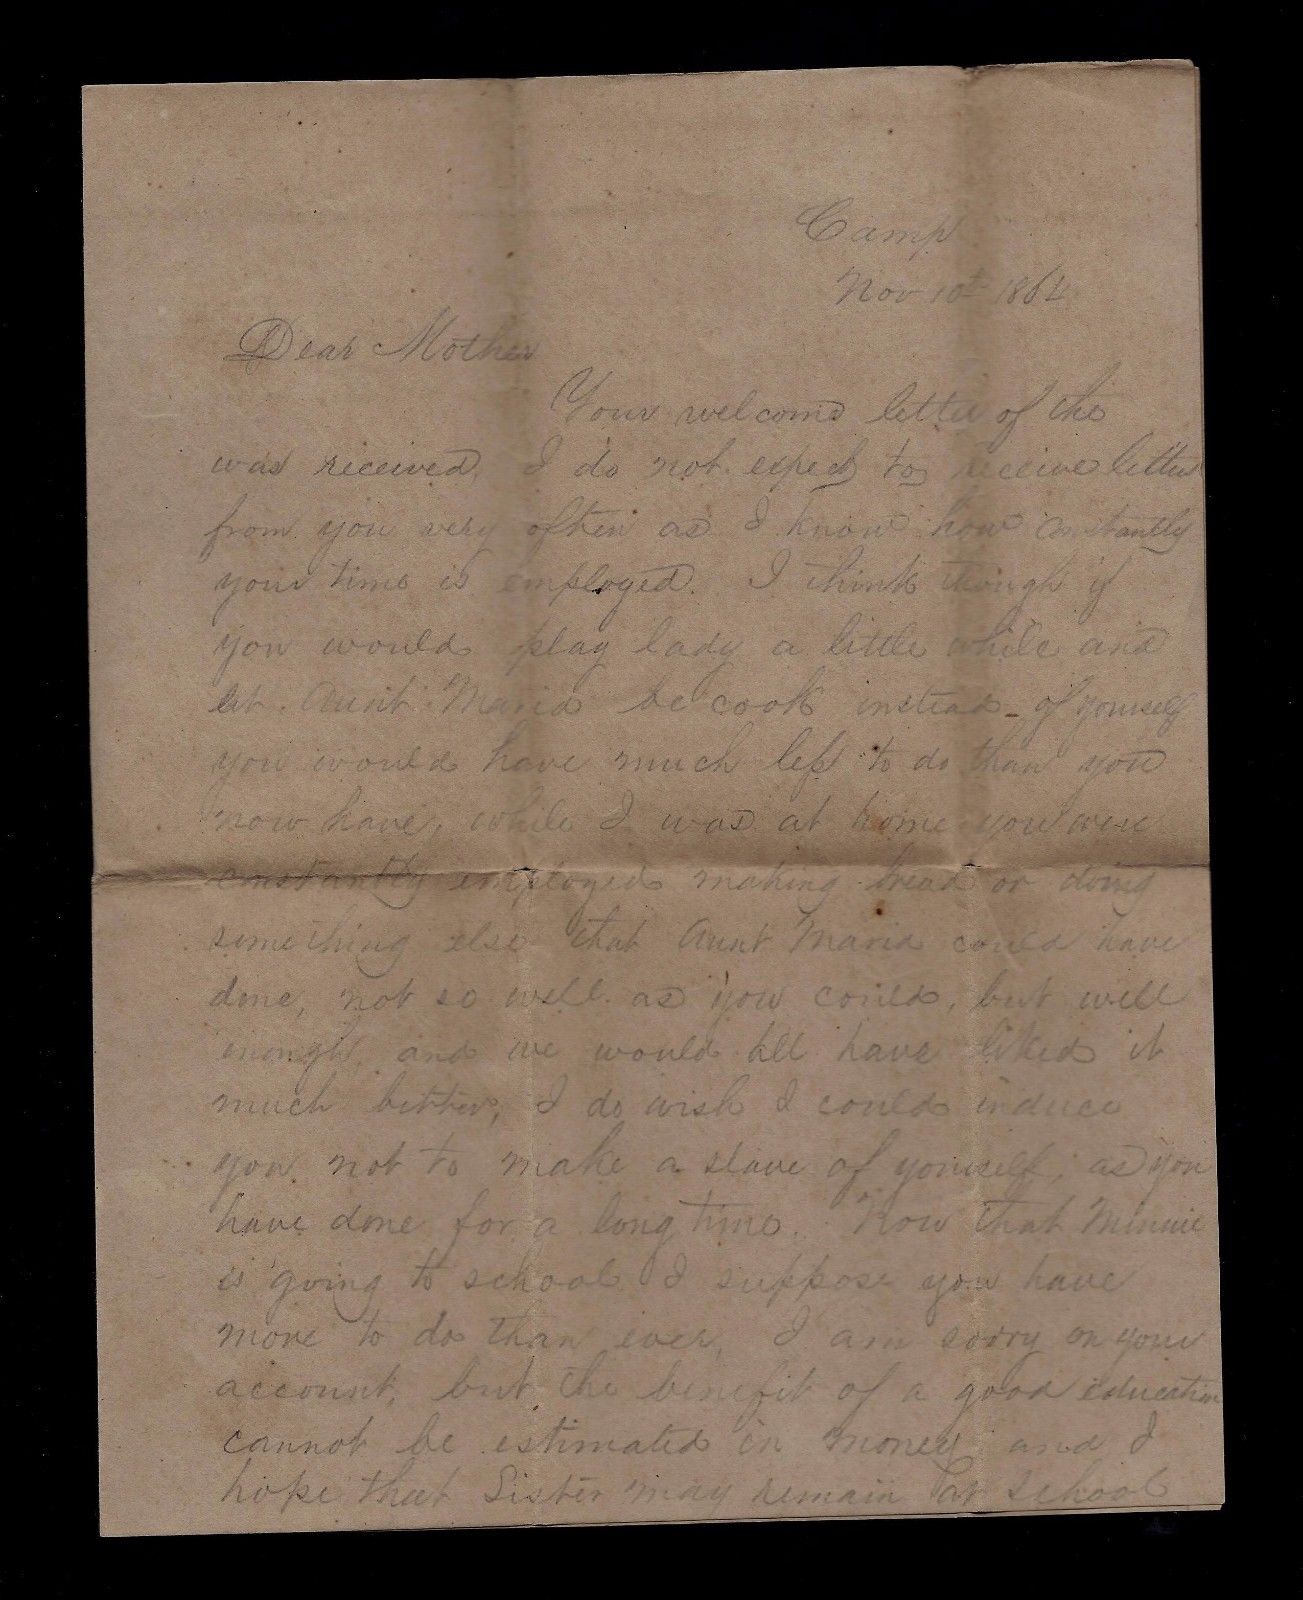 Camp
Nov 10th 1864
Dear Mother
Your welcome letter of the
was received, I do not expect to receive letters
from you very often as I know how constantly
your time is employed. I think though if
you would play lady a little while and
let Aunt Maria be cook instead of yourself
you would have much less to do than you
now have, while I was at home you were
constantly employed making bread or doing
something else that Aunt Maria could have
done, not so well as you could, but well
enough, and we would all have liked it
much better, I do wish I could induce
you not to make a slave of yourself, as you
have done for a long time. Now that Minnie
is going to school I suppose you have
more to do than ever, I am sorry on your
account, but the benefit of a good education
cannot be estimated in money and I
hope that Sister may remain at school